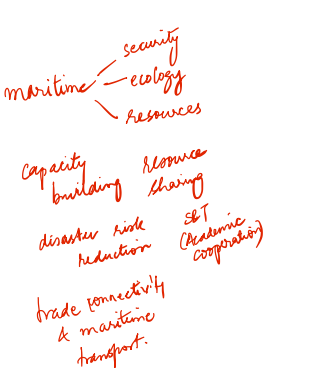 security
maritime
ecology
resources
capacity building
resource sharing
disaster risk reduction
S&T (Academic cooperation)
trade connectivity
& maritime
transport.